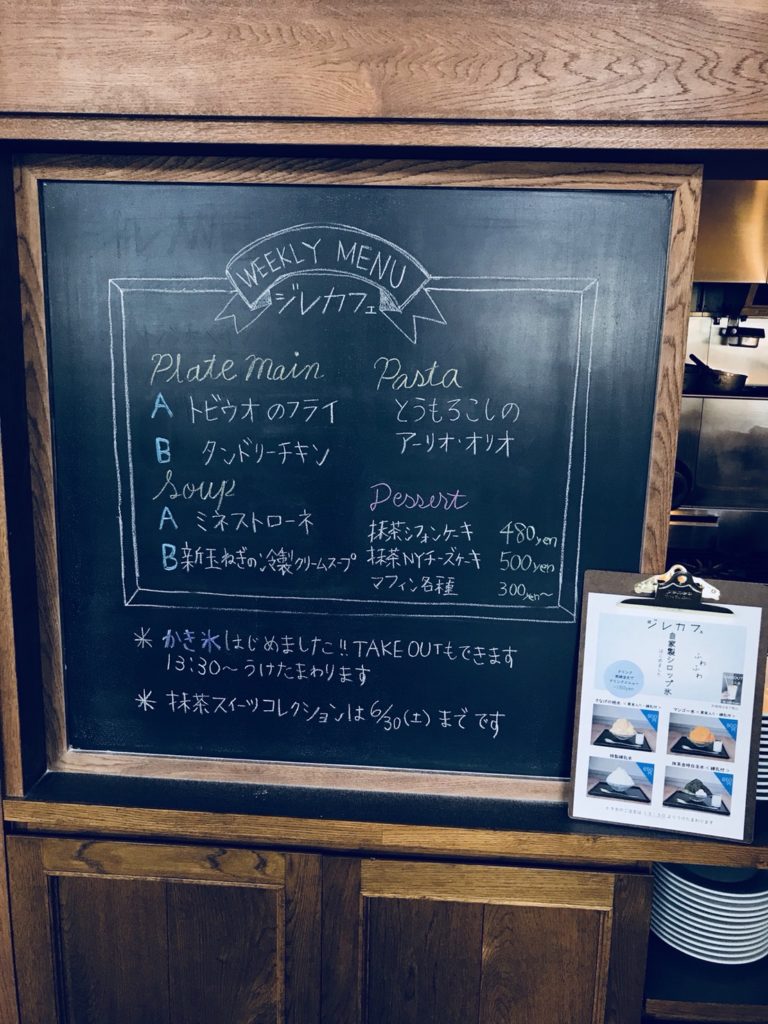 WEEKLY MENU
ジレカフェ
Plate Main
A トビウオのフライ
B タンドリーチキン
Soup
A ミネストローネ
B 新玉ねぎの冷製クリームスープ
Pasta
とうもろこしの
アーリオ・オリオ
Dessert
抹茶シフォンケーキ 480yen
抹茶NYチーズケーキ 500yen
マフィン各種 300yen〜
＊ かき氷はじめました!! TAKE OUTもできます
13:30〜うけたまわります
＊ 抹茶スイーツコレクションは6/30(土)までです
ジレカフェ
ふわふわ
自家製シロップ氷
はじめました